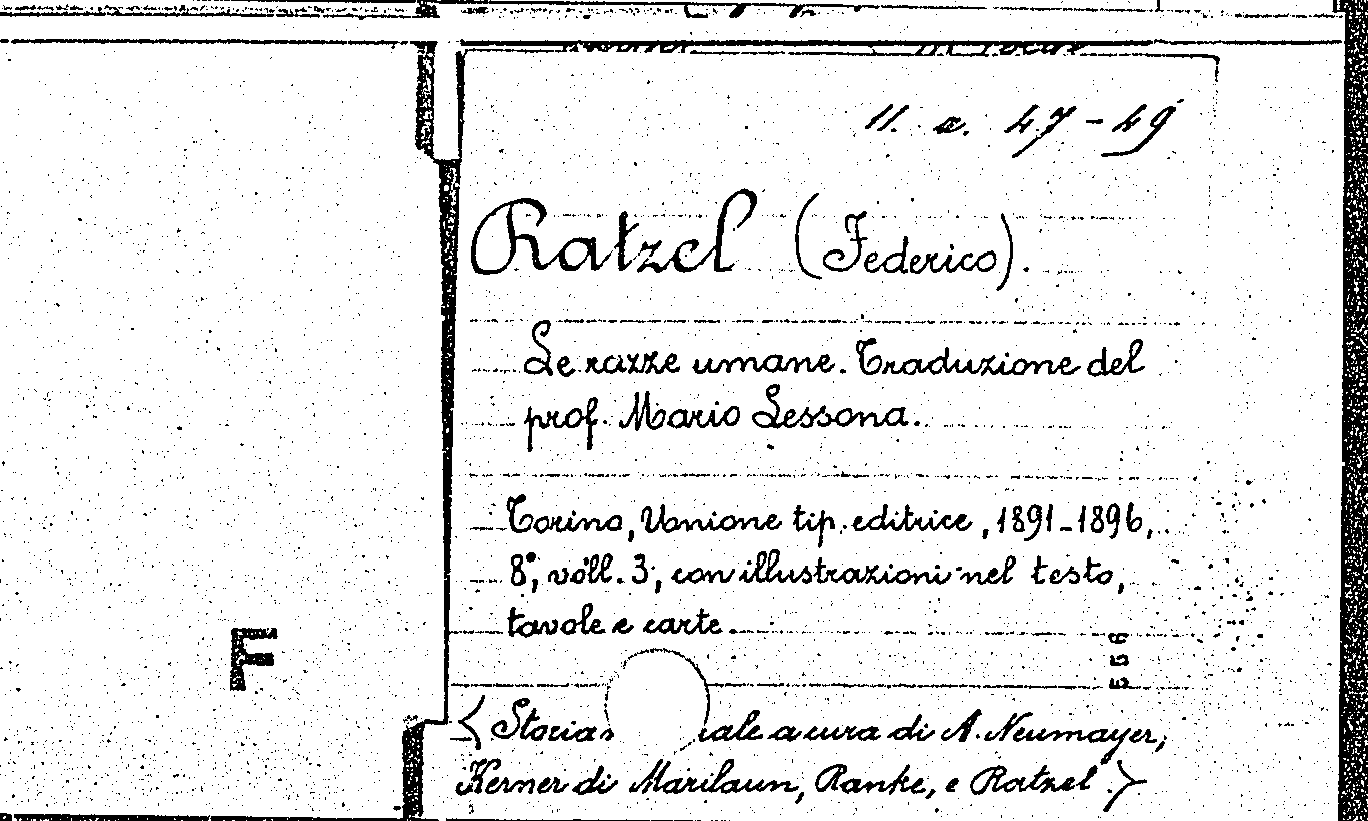 11. a. 47-49
Ratzel (Federico).
Le razze umane. Traduzione del
prof. Mario Lessona.
Torino, Unione tip. editrice, 1891-1896,
8°, voll. 3, con illustrazioni nel testo,
tavole e carte.
F
<Storia iale a cura di A. Neumayer,
Kerner di Marilaun, Ranke, e Ratzel.>